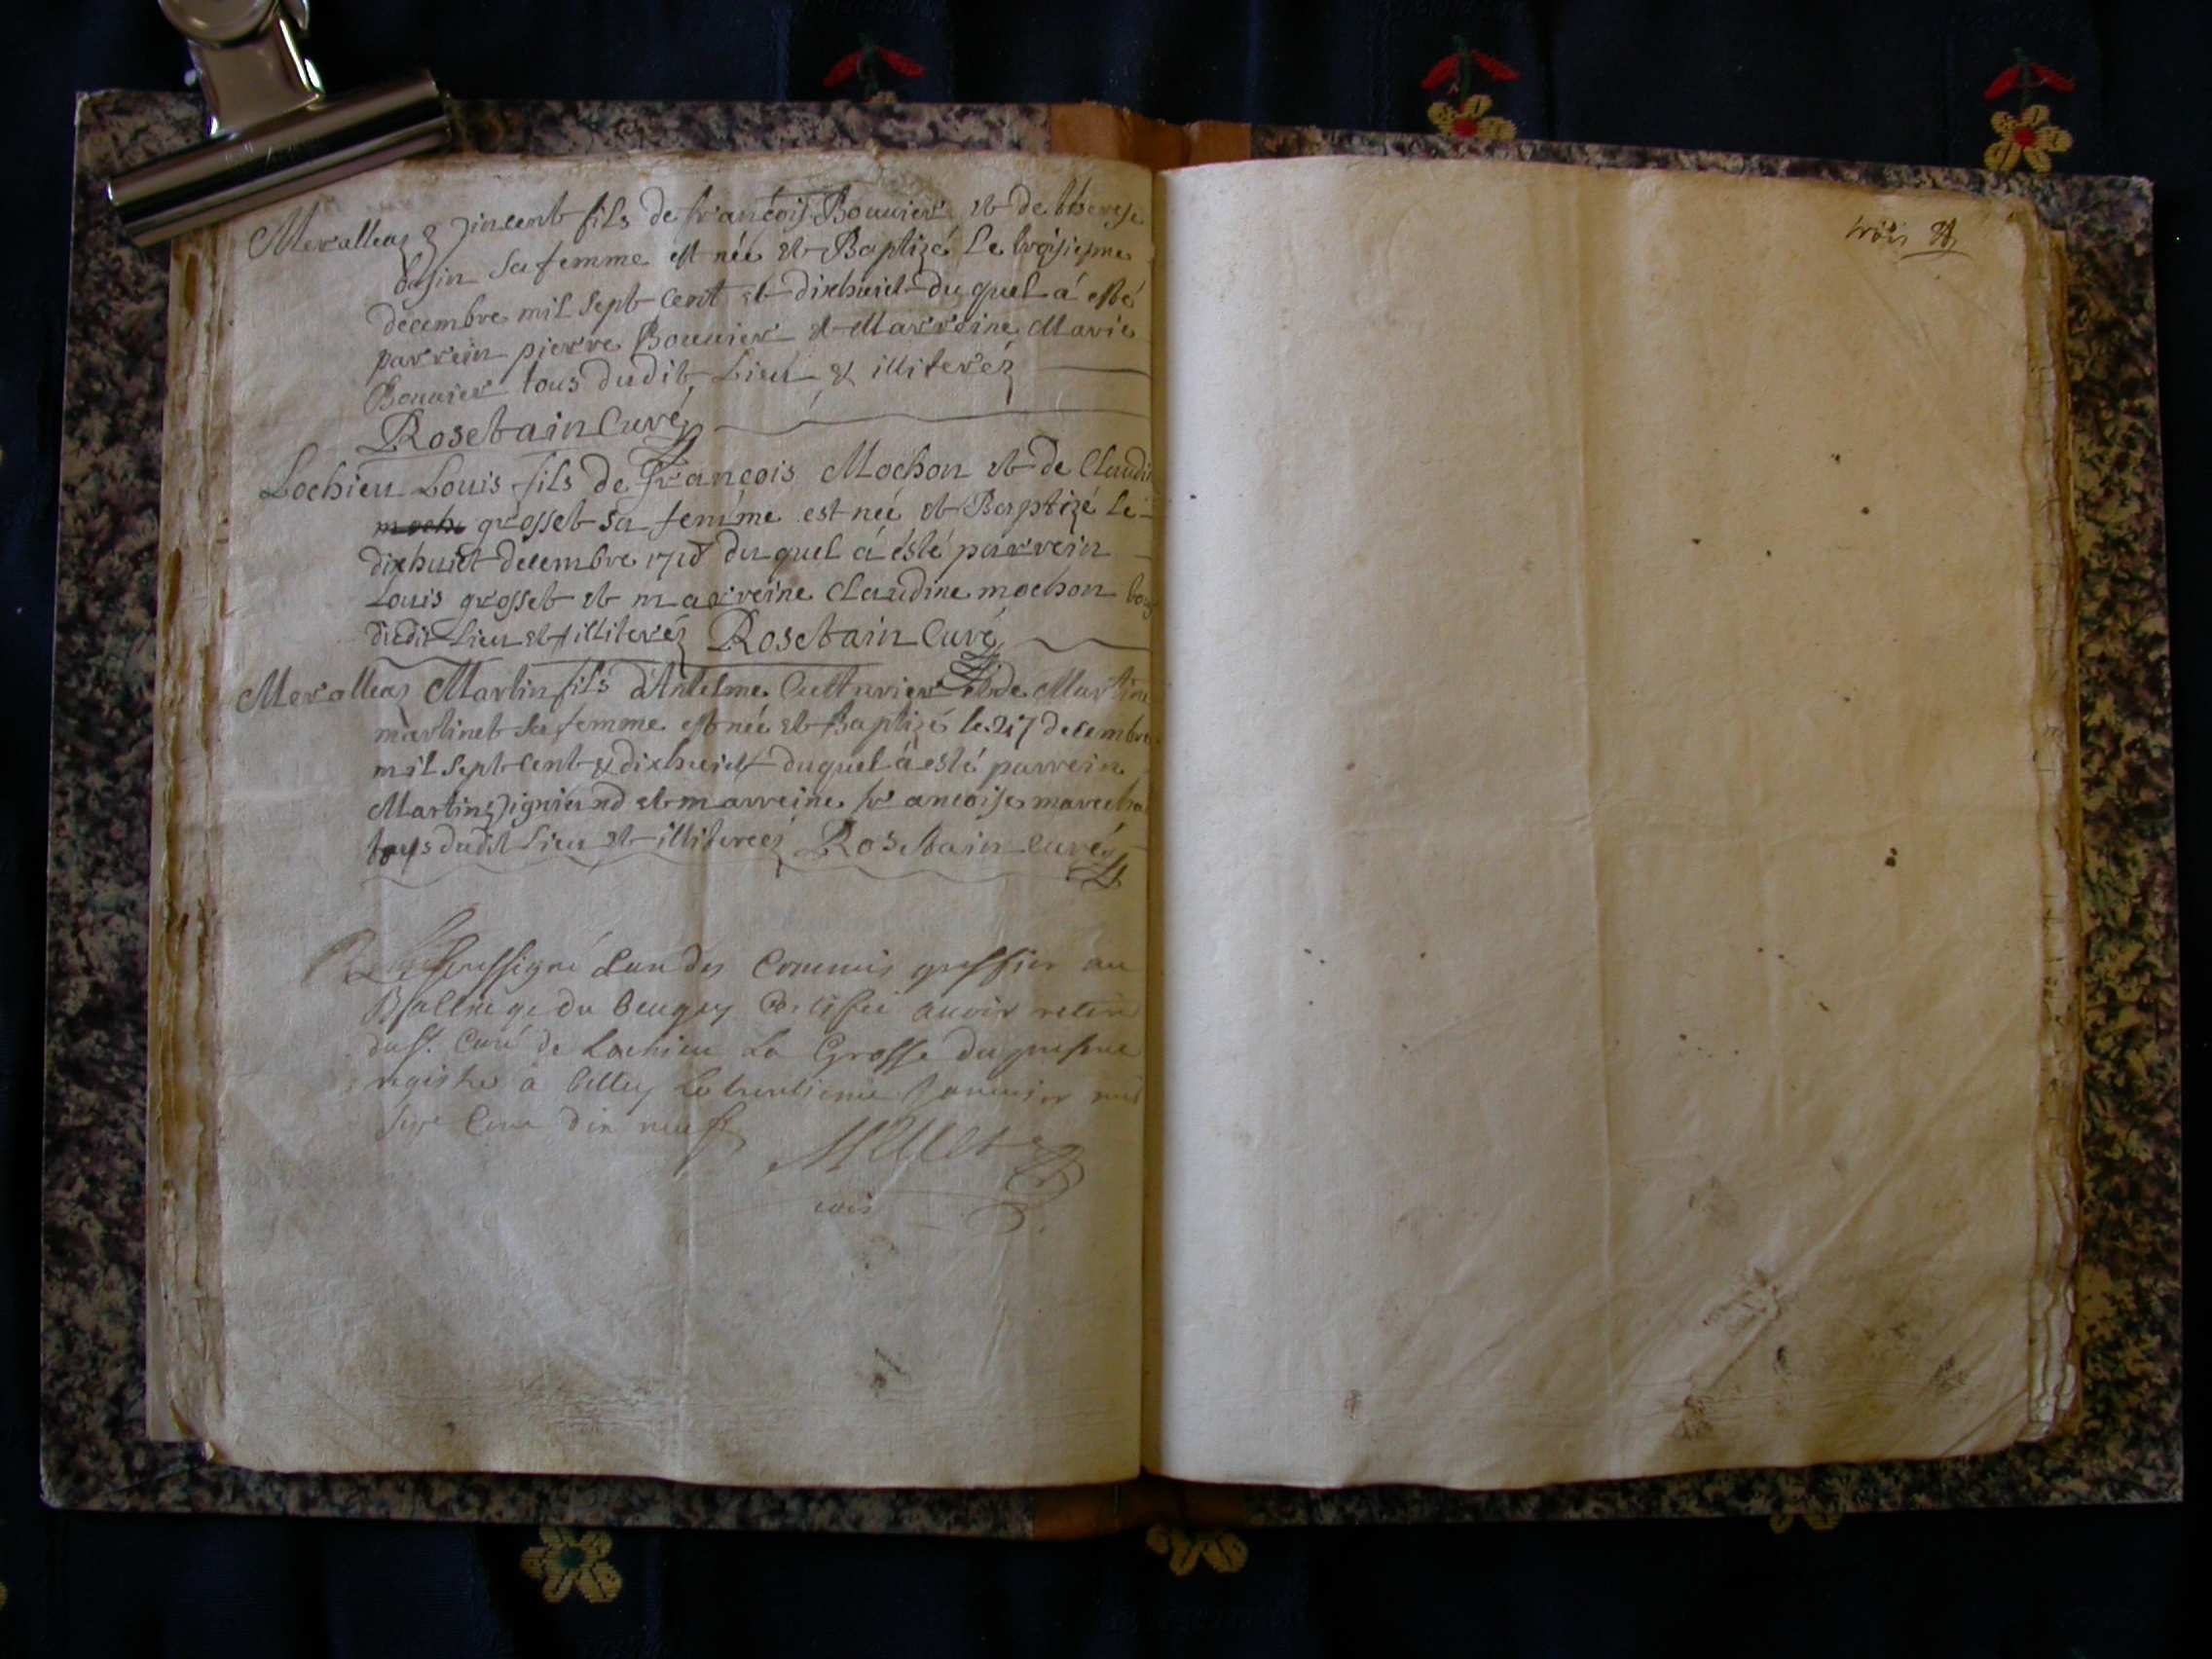 Meralleaz Vincent fils de francois Bouuier et de therese
sa femme est née et Baptizé Le troisiesme
decembre mil sept cent et dixhuict duquel á esté
parrein pierre Bouuier et Marreine Marie
Bouuier tous dudit Lieu & illiterez
Rosetain Curé
Lochieu Louis fils de francois Mochon et de Claudi
grosset sa femme est neé et Baptizé Le
dixhuict decembre 1718 duquel á ésté parrein
Louis grosset et marreine Claudine mochon tous
dudit Lieu et illiterez Rosetain Curé
Meralleaz Martin fils d'Antelme Cultuvier et de Martine
martinet sa femme est née et Baptizé le 27 decembre
mil sept cent & dixhuict duquel á esté parrein
Martin et marreine francoise
tous dudit Lieu et illiterez Rosetain Curé
soussigné Commis greffier au
Balliage du beugey Certiffie auoir retiré
du Sr. Curé de Lochieu La Grosse du
registre à Belley Le trentieme Januier mil
sept Cent dix neuf
trois